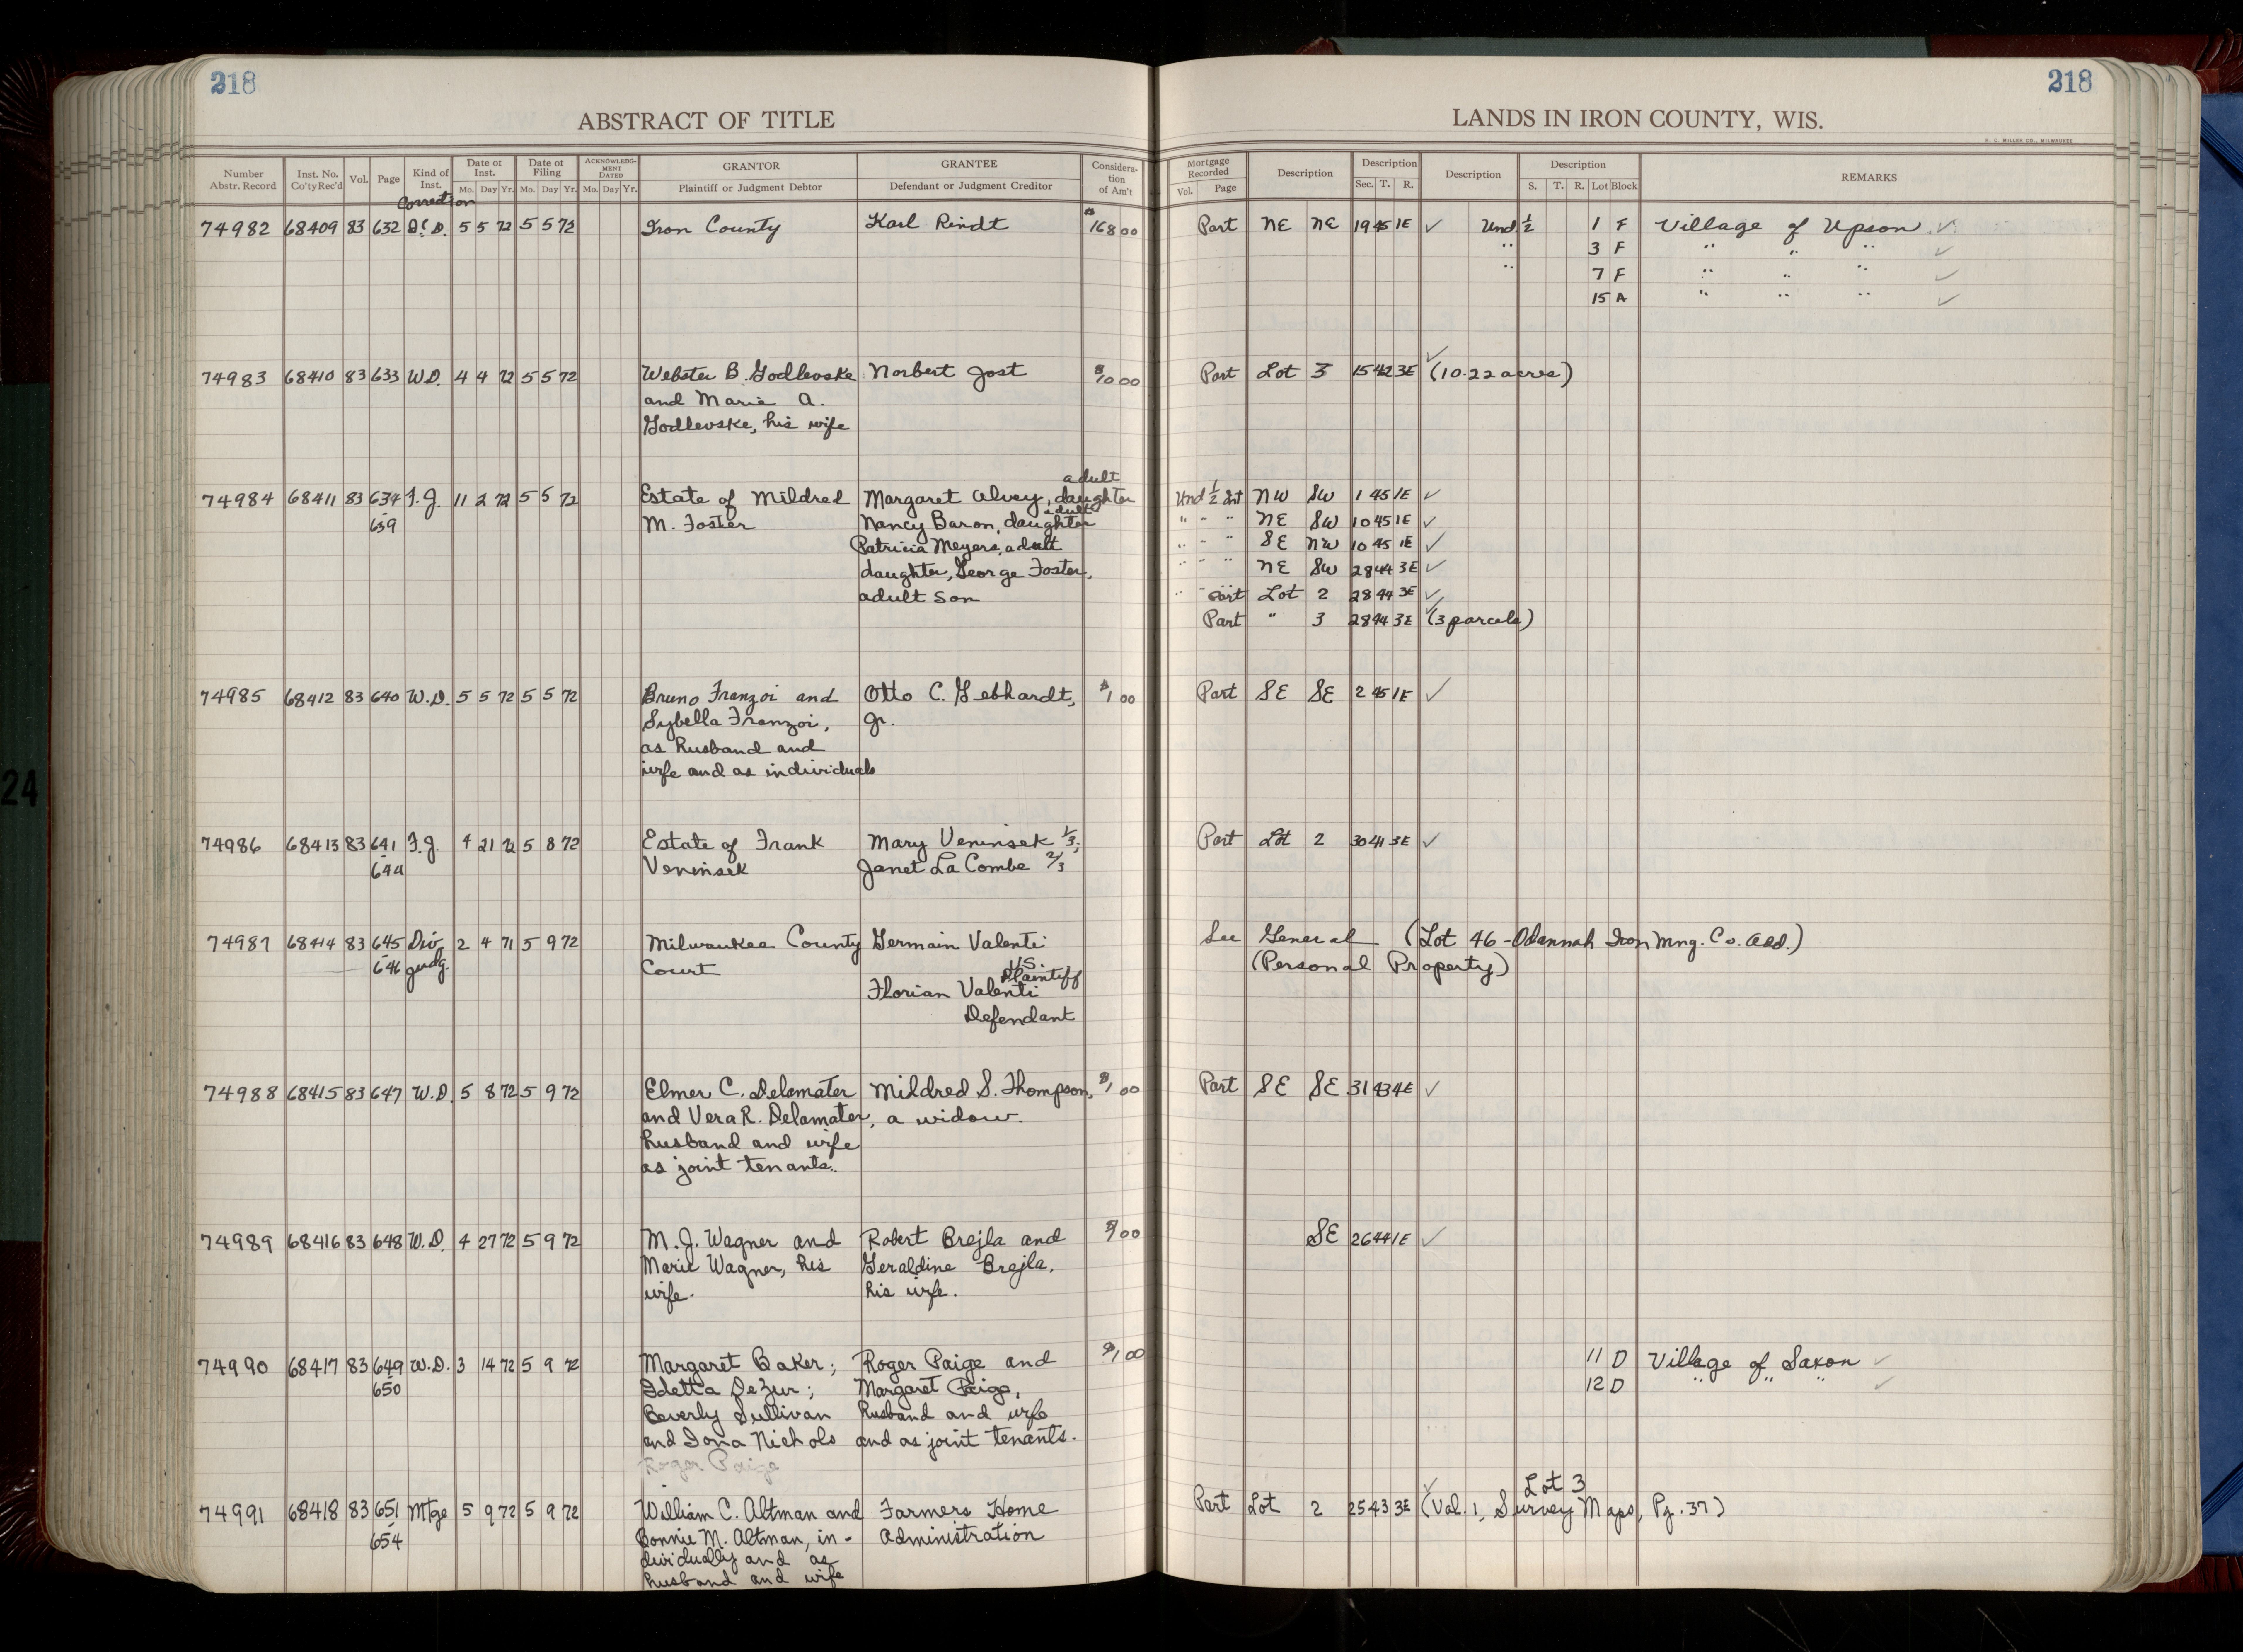 218
218
ABSTRACT OF TITLE
LANDS IN IRON COUNTY, WIS.
H. C. MILLER CO., MILWAUKEE
Number Abstr. Record Inst. No. Co'ty Rec'd Vol. Page Kind of Inst. Date of Inst. Mo. Day Yr. Date of Filing Mo. Day Yr. ACKNOWLEDGMENT DATED Mo. Day Yr. GRANTOR Plaintiff or Judgment Debtor GRANTEE Defendant or Judgment Creditor Consideration of Am't Mortgage Recorded Vol. Page Description Description Sec. T. R. Description Description S. T. R. Lot Block REMARKS
Correction
74982 68409 83 632 Q.C.D. 5 5 72 5 5 72 Iron County Karl Rindt $168 00 Part NE NE 19 45 1E ✓ Und. 1/2 1 F Village of Upson ✓
" 3 F " " " ✓
" 7 F " " " ✓
15 A " " " ✓
74983 68410 83 633 W.D. 4 4 72 5 5 72 Webster B. Godlevske Norbert Jost $10 00 Part Lot 3 15 42 3E ✓ (10.22 acres)
and Marie A.
Godlevske, his wife
adult
74984 68411 83 634 F.J. 11 2 72 5 5 72 Estate of Mildred Margaret Alvey, daughter Und 1/2 Int NW SW 1 45 1E ✓
adult
- 639 M. Foster Nancy Baron, daughter " " " NE SW 10 45 1E ✓
Patricia Meyers, adult " " " SE NW 10 45 1E ✓
daughter, George Foster, " " " NE SW 28 44 3E ✓
adult son " " Part Lot 2 28 44 3E ✓
Part " 3 28 44 3E ✓ (3 parcels)
74985 68412 83 640 W.D. 5 5 72 5 5 72 Bruno Franzoi and Otto C. Gebhardt, $1 00 Part SE SE 2 45 1E ✓
Sybella Franzoi, Jr.
as husband and
wife and as individuals
74986 68413 83 641 F.J. 4 21 72 5 8 72 Estate of Frank Mary Veninsek 1/3; Part Lot 2 30 41 3E ✓
- 644 Veninsek Janet La Combe 2/3
74987 68414 83 645 Div. 2 4 71 5 9 72 Milwaukee County Germain Valenti See General (Lot 46 - Odannah Iron Mng. Co. Add.)
- 646 Judg. Court Plaintiff (Personal Property)
VS.
Florian Valenti
Defendant
74988 68415 83 647 W.D. 5 8 72 5 9 72 Elmer C. Delamater Mildred S. Thompson, $1 00 Part SE SE 31 43 4E ✓
and Vera R. Delamater, a widow.
husband and wife
as joint tenants.
74989 68416 83 648 W.D. 4 27 72 5 9 72 M. J. Wagner and Robert Brejla and $1 00 SE 26 44 1E ✓
Marie Wagner, his Geraldine Brejla,
wife. his wife.
74990 68417 83 649 W.D. 3 14 72 5 9 72 Margaret Baker; Roger Paige and $1 00 11 D Village of Saxon ✓
- 650 Idetta DeZur; Margaret Paige, 12 D " " " ✓
Beverly Sullivan husband and wife
and Iona Nichols and as joint tenants.
Roger Paige
Lot 3
74991 68418 83 651 Mtge 5 9 72 5 9 72 William C. Altman and Farmers Home Part Lot 2 25 43 3E ✓ (Vol. 1, Survey Maps, Pg. 37)
- 654 Bonnie M. Altman, in- Administration
dividually and as
husband and wife
24